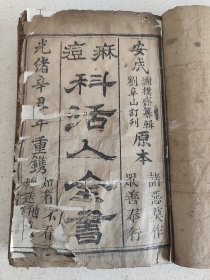 安成
謝樸齋纂輯
劉阜山訂刊
原本
諸惡莫作
眾善奉行
麻痘
科活人全書
光緒辛丑年重鐫
如有不看